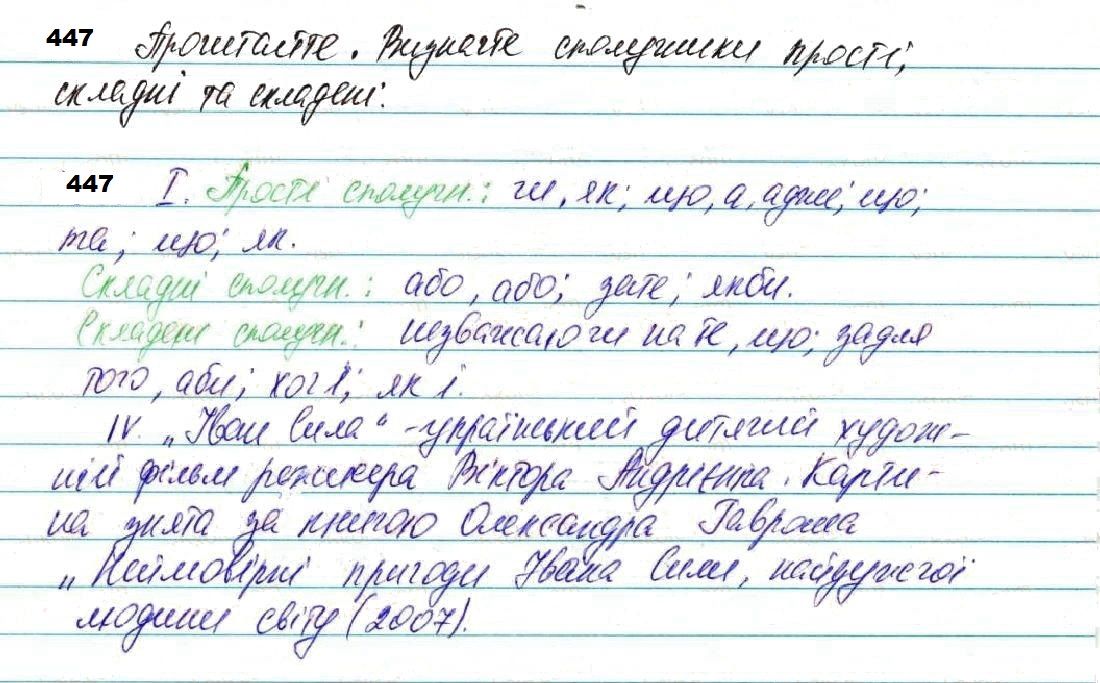 447 Прочитайте. Визначте сполучники прості,
складні та складені.
447 І. Прості сполучн.: чи, як; що, а, адже; що;
та; що; як.
Складні сполучн.: або, або; зате; якби.
Складені сполучн.: незважаючи на те, що; задля
того, аби; хоч і; як і.
IV. „Іван Сила" - український дитячий худож-
ній фільм режисера Віктора Андрієнка. Карти-
на знята за книгою Олександра Гавроша
„Неймовірні пригоди Івана Сили, найдужчої
людини світу (2007).